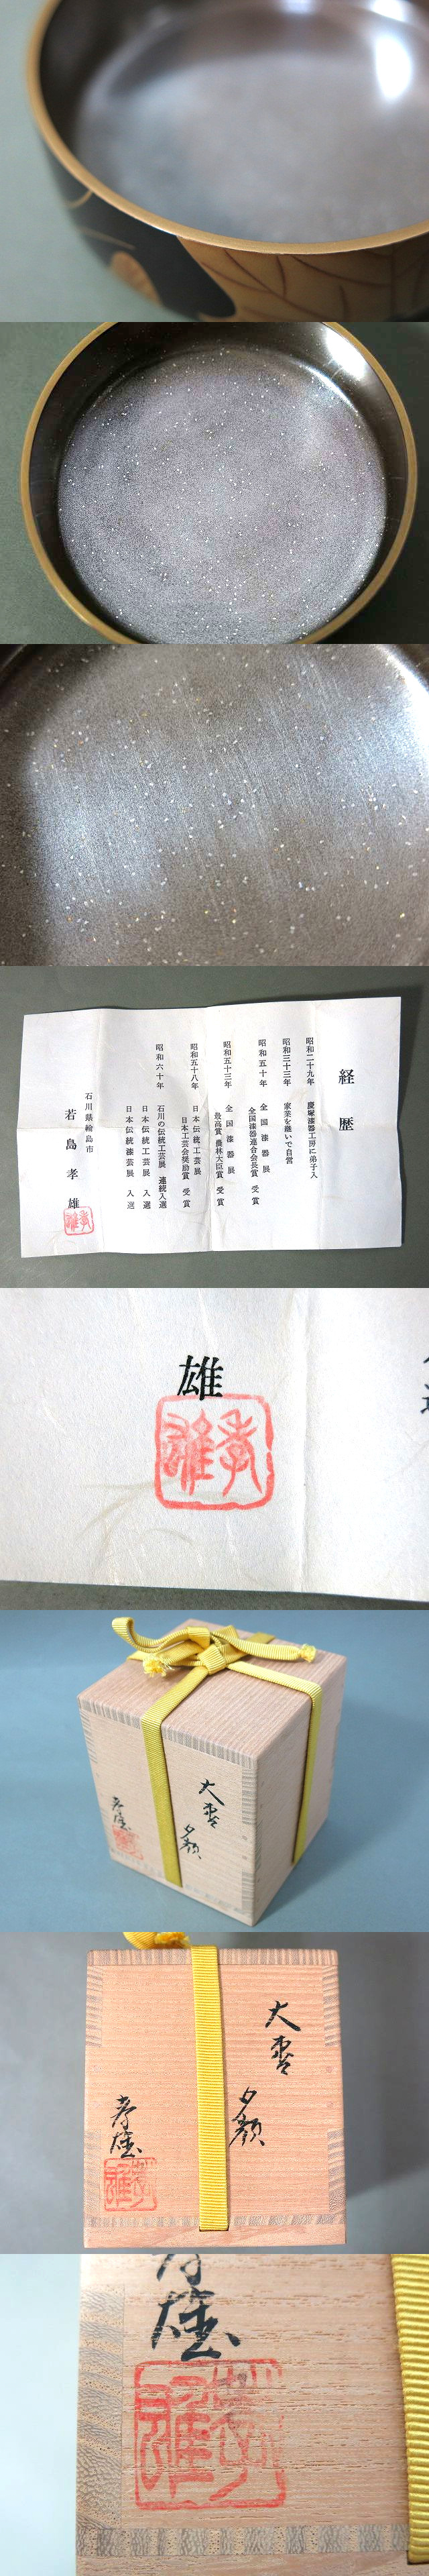 経歴
昭和二十九年 慶塚漆器工房に弟子入
昭和三十三年 家業を継いで自営
昭和五十年 全国漆器展
全国漆器連合会長賞 受賞
昭和五十三年 全国漆器展
最高賞 農林大臣賞 受賞
昭和五十八年 日本伝統工芸展
日本工芸会奨励賞 受賞
昭和六十年 石川の伝統工芸展 連続入選
日本伝統工芸展 入選
日本伝統漆芸展 入選
石川県輪島市
若島孝雄
孝雄
雄
孝雄
大棗
夕顔
孝雄
孝雄
大棗
夕顔
孝雄
孝雄
孝雄
孝雄